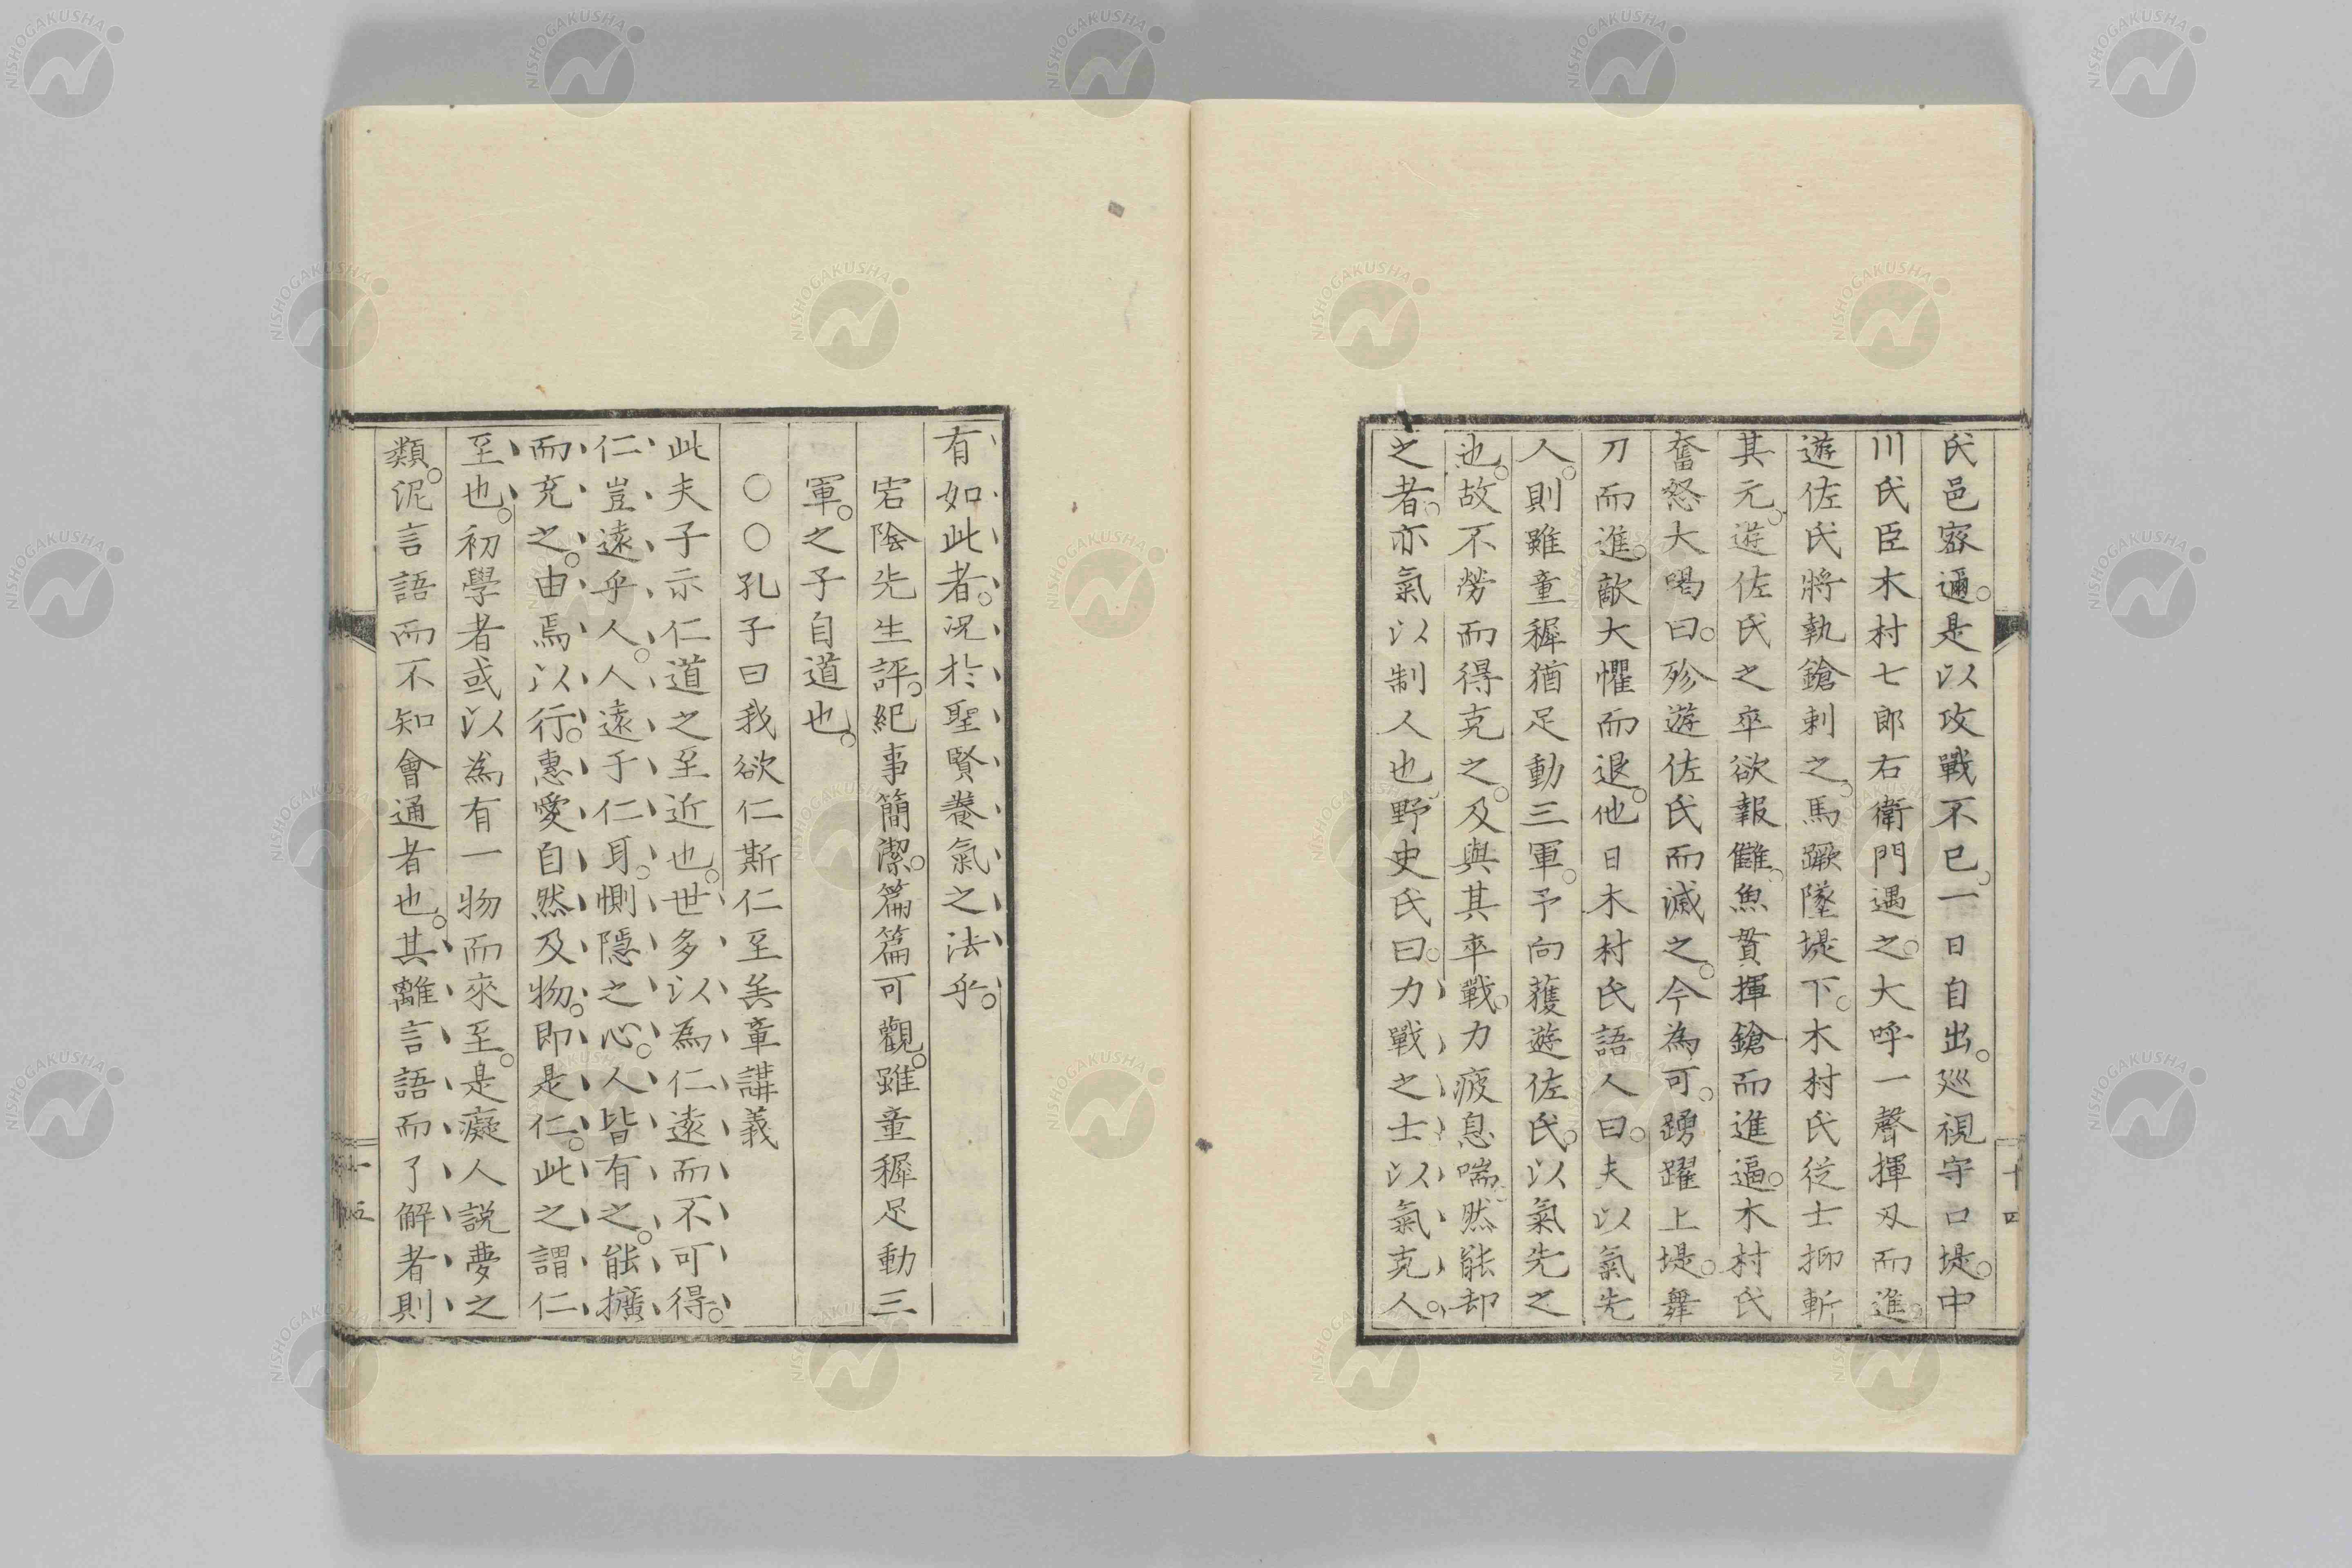 氏邑密邇。是以攻戰不已。一日自出。巡視宇口堤。中
川氏臣木村七郎右衛門遇之。大呼一聲揮刄而進。
遊佐氏將執鎗刺之。馬蹶墜堤下。木村氏從士抑斬
其元。遊佐氏之卒欲報讎。魚貫揮鎗而進逼。木村氏
奮怒大喝曰。殄遊佐氏而滅之。今為可。踴躍上堤。舞
刀而進。敵大懼而退。他日木村氏語人曰。夫以氣先
人。則雖童穉猶足動三軍。予向獲遊佐氏。以氣先之
也。故不勞而得克之。及與其卒戰。力疲息喘。然能却
之者。亦氣以制人也。野史氏曰。力戰之士以氣克人。
十四
有如此者。況於聖賢養氣之法乎。
宕陰先生評。紀事簡潔。篇篇可觀。雖童穉足動三
軍。之子自道也。
〇〇孔子曰我欲仁斯仁至矣章講義
此夫子示仁道之至近也。世多以為仁遠而不可得。
仁豈遠乎人。人遠于仁耳。惻隱之心。人皆有之。能擴
而充之。由焉以行。惠愛自然及物。即是仁。此之謂仁
至也。初學者或以為有一物而來至。是癡人説夢之
類。泥言語而不知會通者也。其離言語而了解者則